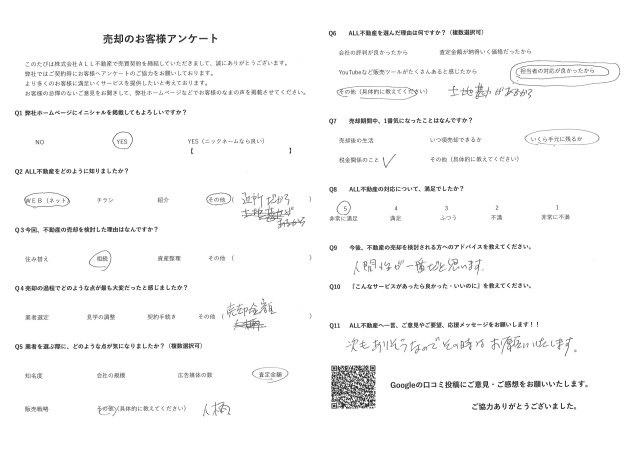 売却のお客様アンケート
このたびは株式会社ALL不動産で売買契約を締結していただきまして、誠にありがとうございます。
弊社ではご契約時にお客様へアンケートのご協力をお願いしております。
より多くのお客様に満足いくサービスを提供したいと考えております。
お客様の忌憚のないご意見をお聞きして、弊社ホームページなどでお客様のなまの声を掲載させてください。
Q1 弊社ホームページにイニシャルを掲載してもよろしいですか?
NO YES YES(ニックネームなら良い)
【 】
Q2 ALL不動産をどのように知りましたか?
WEB(ネット) チラシ 紹介 その他( 近所だから )
土地勘が
あるから
Q3今回、不動産の売却を検討した理由はなんですか?
住み替え 相続 資産整理 その他( )
Q4売却の過程でどのような点が最も大変だったと感じましたか?
業者選定 見学の調整 契約手続き その他( 売却金額 )
Q5 業者を選ぶ際に、どのような点が気になりましたか?(複数選択可)
知名度 会社の規模 広告媒体の数 査定金額
販売戦略 その他(具体的に教えてください) 人柄
Q6 ALL不動産を選んだ理由は何ですか?(複数選択可)
会社の評判が良かったから 査定金額が納得いく価格だったから
YouTubeなど販売ツールがたくさんあると感じたから 担当者の対応が良かったから
その他(具体的に教えてください) 土地勘があるから
Q7 売却期間中、1番気になったことはなんですか?
売却後の生活 いつ頃売却できるか いくら手元に残るか
税金関係のこと その他(具体的に教えてください)
Q8 ALL不動産の対応について、満足でしたか?
5 4 3 2 1
非常に満足 満足 ふつう 不満 非常に不満
Q9 今後、不動産の売却を検討される方へのアドバイスを教えてください。
人間性が一番だと思います。
Q10 『こんなサービスがあったら良かった・いいのに』を教えてください。
Q11 ALL不動産へ一言、ご意見やご要望、応援メッセージをお願いします!!
次もありそうなのでその時はお願いいたします。
Googleの口コミ投稿にご意見・ご感想をお願いいたします。
ご協力ありがとうございました。